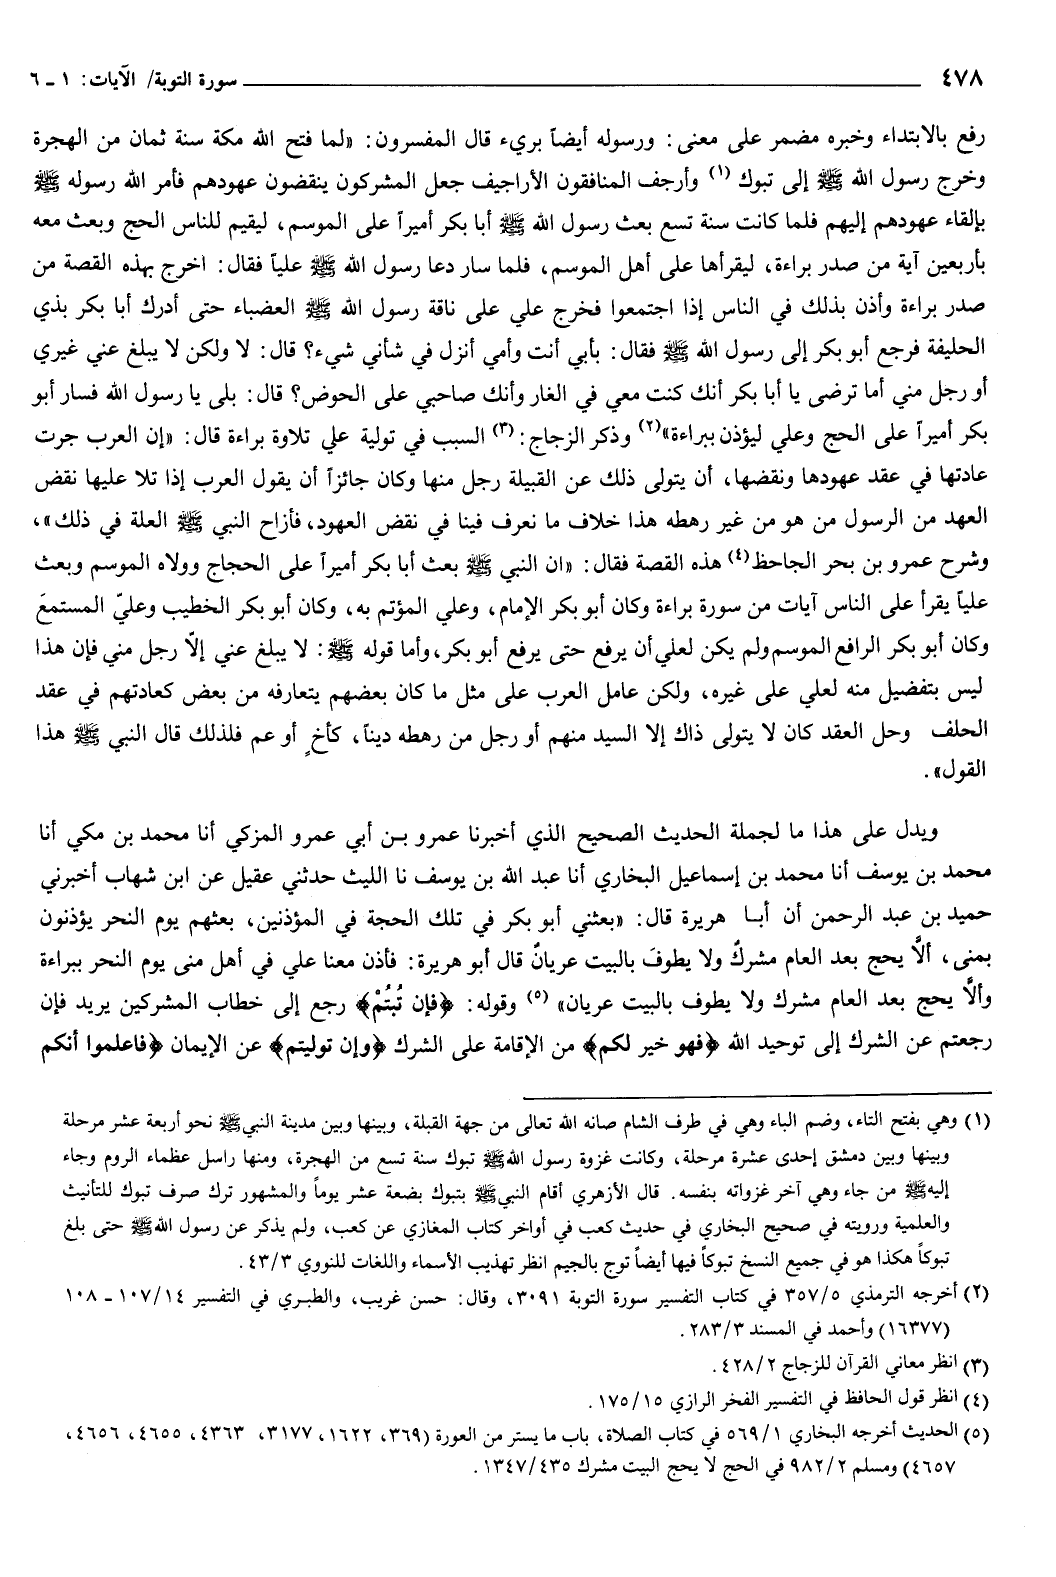 ٤٧٨ سورة التوبة/ الآيات: ١ ـ ٦
رفع بالابتداء وخبره مضمر على معنى: ورسوله أيضاً بريء قال المفسرون: «لما فتح الله مكة سنة ثمان من الهجرة
وخرج رسول الله ﷺ إلى تبوك (١) وأرجف المنافقون الأراجيف جعل المشركون ينقضون عهودهم فأمر الله رسوله ﷺ
بإلقاء عهودهم إليهم فلما كانت سنة تسع بعث رسول الله ﷺ أبا بكر أميراً على الموسم، ليقيم للناس الحج وبعث معه
بأربعين آية من صدر براءة، ليقرأها على أهل الموسم، فلما سار دعا رسول الله ﷺ علياً فقال: اخرج بهذه القصة من
صدر براءة وأذن بذلك في الناس إذا اجتمعوا فخرج علي على ناقة رسول الله ﷺ العضباء حتى أدرك أبا بكر بذي
الحليفة فرجع أبو بكر إلى رسول الله ﷺ فقال: بأبي أنت وأمي أنزل في شأني شيء؟ قال: لا ولكن لا يبلغ عني غيري
أو رجل مني أما ترضى يا أبا بكر أنك كنت معي في الغار وأنك صاحبي على الحوض؟ قال: بلى يا رسول الله فسار أبو
بكر أميراً على الحج وعلي ليؤذن ببراءة»(٢) وذكر الزجاج:(٣) السبب في تولية علي تلاوة براءة قال: «إن العرب جرت
عادتها في عقد عهودها ونقضها، أن يتولى ذلك عن القبيلة رجل منها وكان جائزاً أن يقول العرب إذا تلا عليها نقض
العهد من الرسول من هو من غير رهطه هذا خلاف ما نعرف فينا في نقض العهود، فأزاح النبي ﷺ العلة في ذلك»،
وشرح عمرو بن بحر الجاحظ(٤) هذه القصة فقال: «ان النبي ﷺ بعث أبا بكر أميراً على الحجاج وولاه الموسم وبعث
علياً يقرأ على الناس آيات من سورة براءة وكان أبو بكر الإمام، وعلي المؤتم به، وكان أبو بكر الخطيب وعليّ المستمعَ
وكان أبو بكر الرافع الموسم ولم يكن لعلي أن يرفع حتى يرفع أبو بكر، وأما قوله ﷺ: لا يبلغ عني إلاّ رجل مني فإن هذا
ليس بتفضيل منه لعلي على غيره، ولكن عامل العرب على مثل ما كان بعضهم يتعارفه من بعض كعادتهم في عقد
الحلف وحل العقد كان لا يتولى ذاك إلا السيد منهم أو رجل من رهطه ديناً، كأخٍ أو عم فلذلك قال النبي ﷺ هذا
القول».
ويدل على هذا ما لجملة الحديث الصحيح الذي أخبرنا عمرو بـن أبي عمرو المزكي أنا محمد بن مكي أنا
محمد بن يوسف أنا محمد بن إسماعيل البخاري أنا عبد الله بن يوسف نا الليث حدثني عقيل عن ابن شهاب أخبرني
حميد بن عبد الرحمن أن أبـا هريرة قال: «بعثني أبو بكر في تلك الحجة في المؤذنين، بعثهم يوم النحر يؤذنون
بمنى، ألاَّ يحج بعد العام مشركٌ ولا يطوفَ بالبيت عريانٌ قال أبو هريرة: فأذن معنا علي في أهل منى يوم النحر ببراءة
وألاَّ يحج بعد العام مشرك ولا يطوف بالبيت عريان» (٥) وقوله: ﴿فإن تُبتُمْ﴾ رجع إلى خطاب المشركين يريد فإن
رجعتم عن الشرك إلى توحيد الله ﴿فهو خير لكم﴾ من الإقامة على الشرك ﴿وإن توليتم﴾ عن الإيمان ﴿فاعلموا أنكم
(١) وهي بفتح التاء، وضم الباء وهي في طرف الشام صانه الله تعالى من جهة القبلة، وبينها وبين مدينة النبيﷺ نحو أربعة عشر مرحلة
وبينها وبين دمشق إحدى عشرة مرحلة، وكانت غزوة رسول اللهﷺ تبوك سنة تسع من الهجرة، ومنها راسل عظماء الروم وجاء
إليهﷺ من جاء وهي آخر غزواته بنفسه. قال الأزهري أقام النبيﷺ بتبوك بضعة عشر يوماً والمشهور ترك صرف تبوك للتأنيث
والعلمية ورويته في صحيح البخاري في حديث كعب في أواخر كتاب المغازي عن كعب، ولم يذكر عن رسول اللهﷺ حتى بلغ
تبوكاً هكذا هو في جميع النسخ تبوكاً فيها أيضاً توج بالجيم انظر تهذيب الأسماء واللغات للنووي ٤٣/٣.
(٢) أخرجه الترمذي ٣٥٧/٥ في كتاب التفسير سورة التوبة ٣٠٩١، وقال: حسن غريب، والطبـري في التفسير ١٠٧/١٤ ـ ١٠٨
(١٦٣٧٧) وأحمد في المسند ٢٨٣/٣.
(٣) انظر معاني القرآن للزجاج ٤٢٨/٢.
(٤) انظر قول الحافظ في التفسير الفخر الرازي ١٧٥/١٥.
(٥) الحديث أخرجه البخاري ٥٦٩/١ في كتاب الصلاة، باب ما يستر من العورة (٣٦٩، ١٦٢٢، ٣١٧٧، ٤٣٦٣، ٤٦٥٥، ٤٦٥٦،
٤٦٥٧) ومسلم ٩٨٢/٢ في الحج لا يحج البيت مشرك ١٣٤٧/٤٣٥.